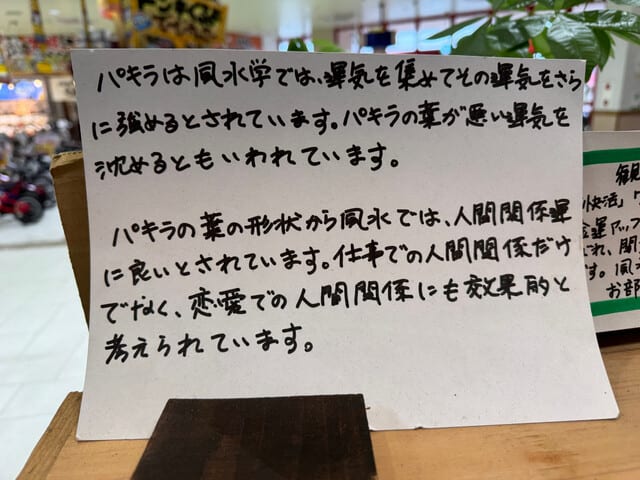 パキラは風水学では、運気を集めてその運気をさら
に強めるとされています。パキラの葉が悪い運気を
沈めるともいわれています。
パキラの葉の形状から風水では、人間関係運
に良いとされています。仕事での人間関係だけ
でなく、恋愛での人間関係にも効果的と
考えられています。
快活」
金運アップ
れ、関
す。風
お部